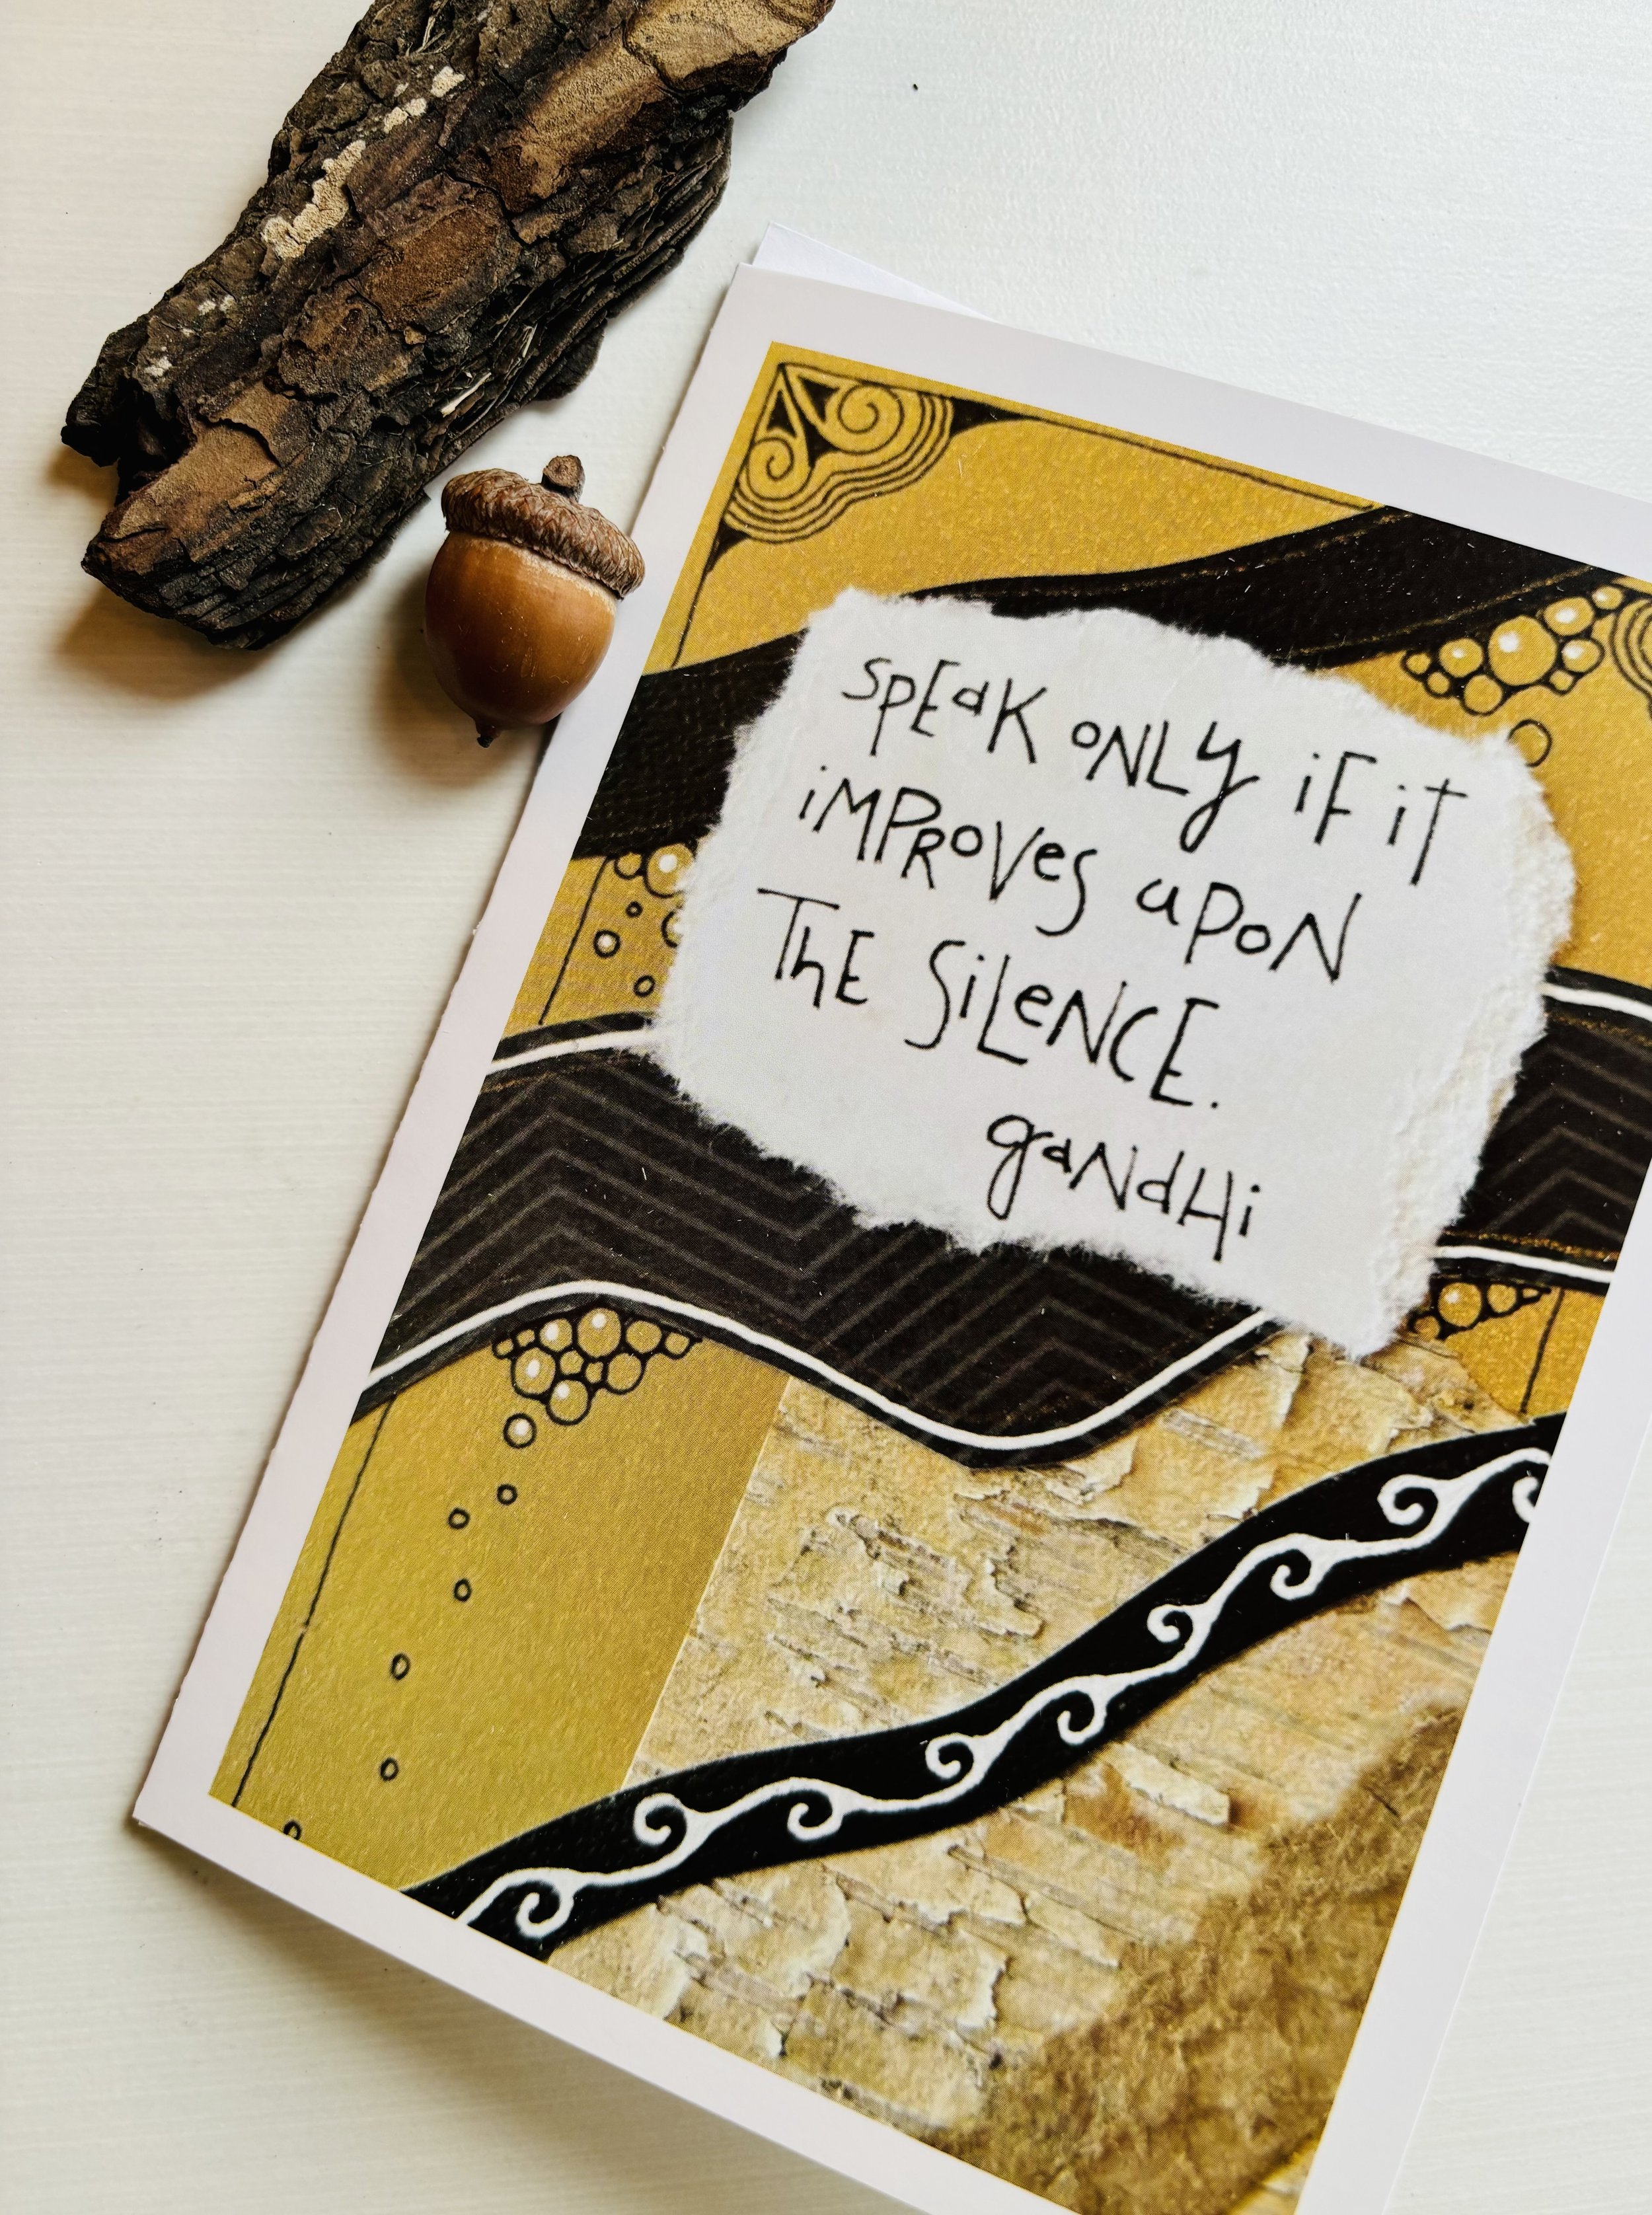 SpEaK ONLy iF iT
iMPRoVeS uPoN
ThE SiLeNCE.
graNdHi